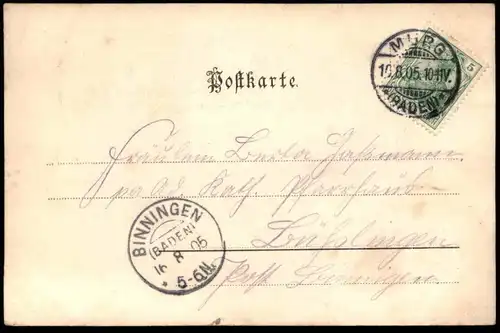 MURG
16.8.05.10-11V.
(BADEN)
5
Postkarte.
Fräulein Berta
Kath. Pfarrhaus
Post Binningen
BINNINGEN
(BADEN)
16 8 05
* 5-6N.